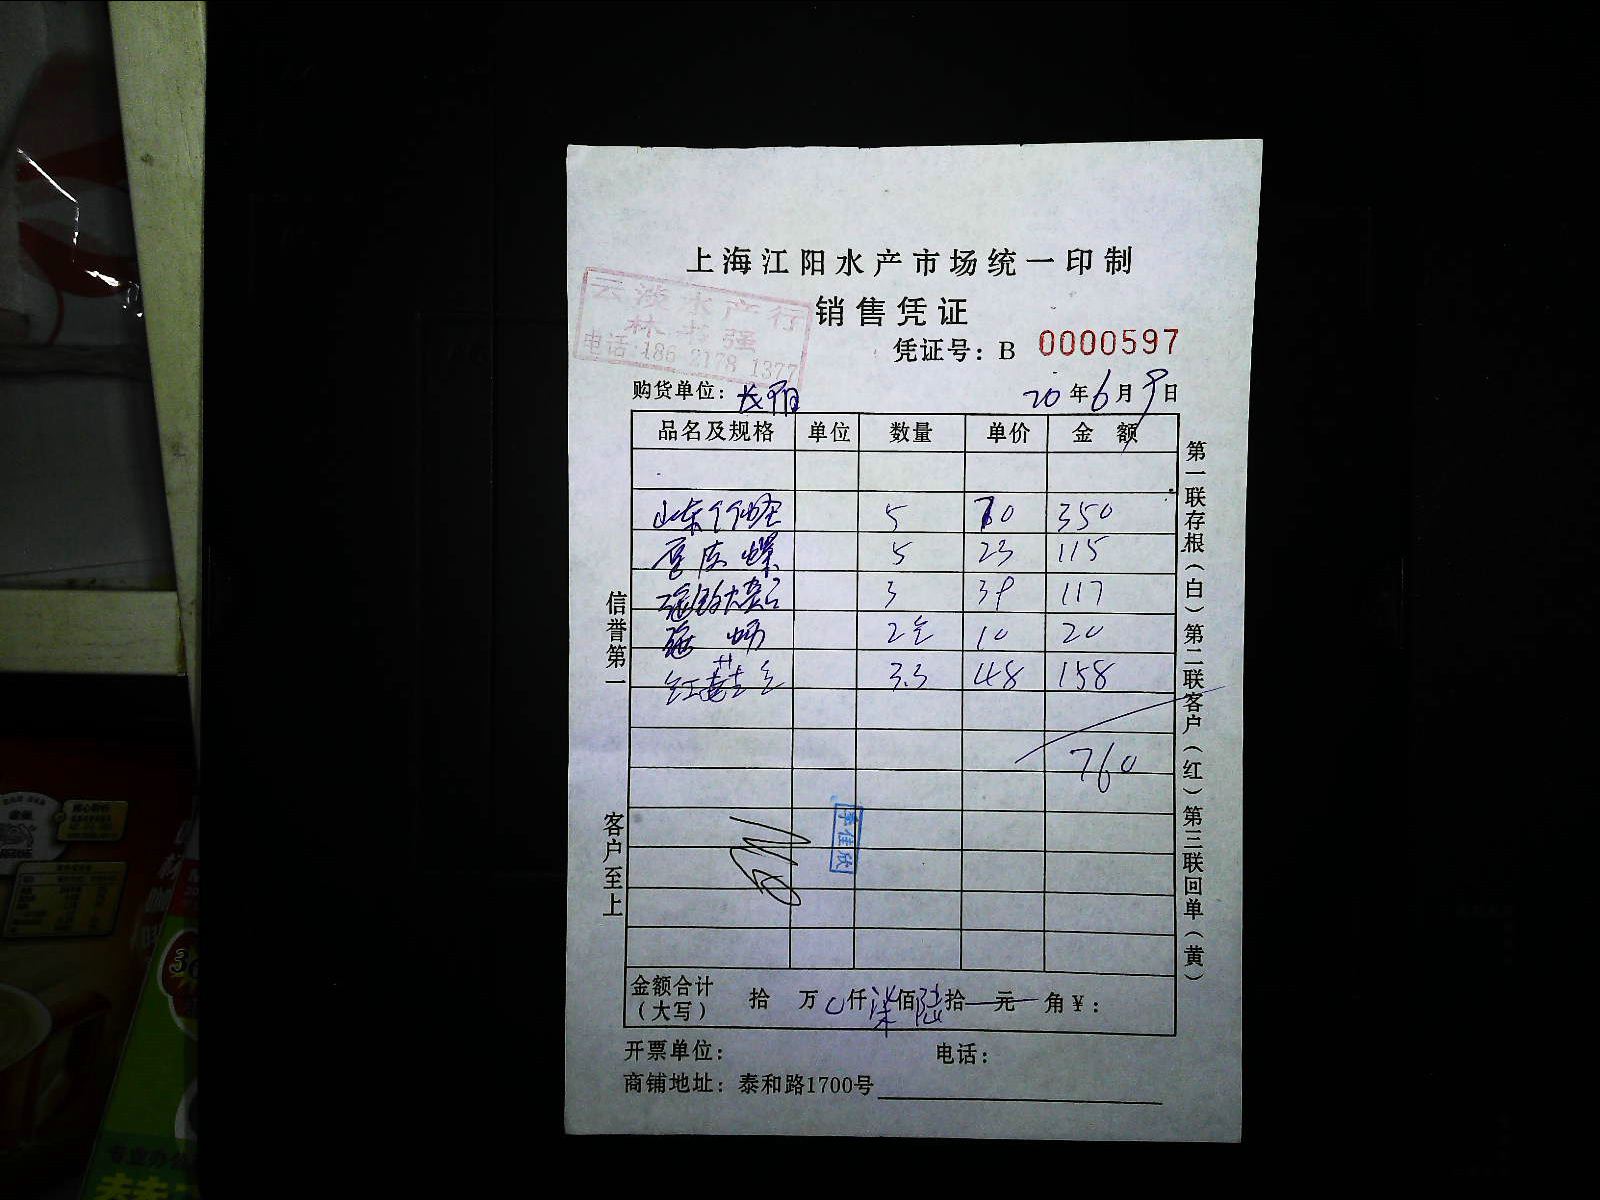 上海江阳水产市场统一印制
销售凭证
云波水产行
林书强
电话:186 2178 1377
凭证号：B 0000597
购货单位：长阳
20年6月9日
品名及规格 单位 数量 单价 金额
山东 5 70 350
厚皮螺 5 23 115
3 39 117
2 10 20
红 3.3 48 158
760
李佳欣
金额合计（大写） 拾 万 0仟柒佰陆拾 元 角￥：
开票单位： 电话：
商铺地址：泰和路1700号
信誉第一
客户至上
第一联存根（白）第二联客户（红）第三联回单（黄）